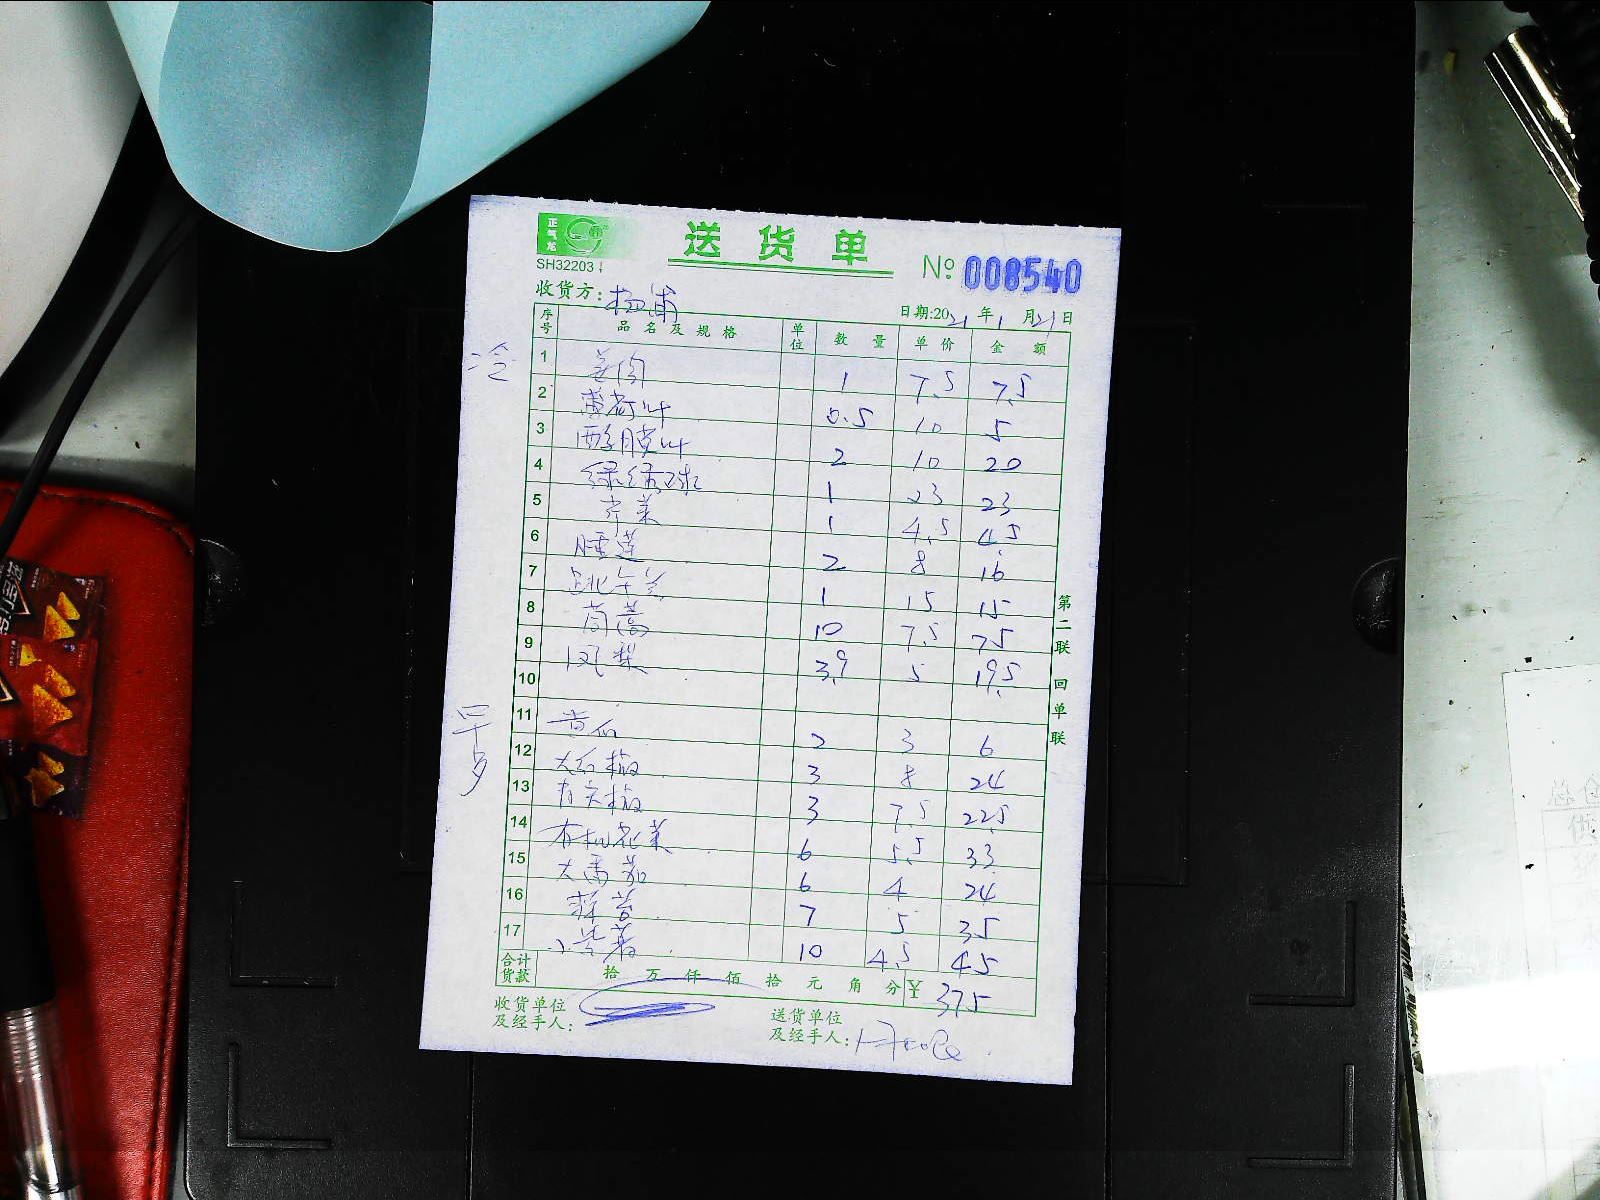 正气龙
送货单
SH32203
№ 008540
收货方: 杨浦
日期:2021年1月21日
序号 品名及规格 单位 数量 单价 金额
冷
1 姜肉 1 7.5 7.5
2 薄荷叶 0.5 10 5
3 2 10 20
4 绿绣球 1 23 23
5 芹菜 1 4.5 4.5
6 睡莲 2 8 16
7 1 15 15
8 茼蒿 10 7.5 75
9 凤梨 3.9 5 19.5
10
早点
11 黄瓜 2 3 6
12 大红椒 3 8 24
13 青尖椒 3 7.5 22.5
14 有机花菜 6 5.5 33
15 大番茄 6 4 24
16 蒜苔 7 5 35
17 10 4.5 45
合计货款 拾 万 仟 佰 拾 元 角 分 ¥ 375
收货单位及经手人:
送货单位及经手人:
第二联 回单联